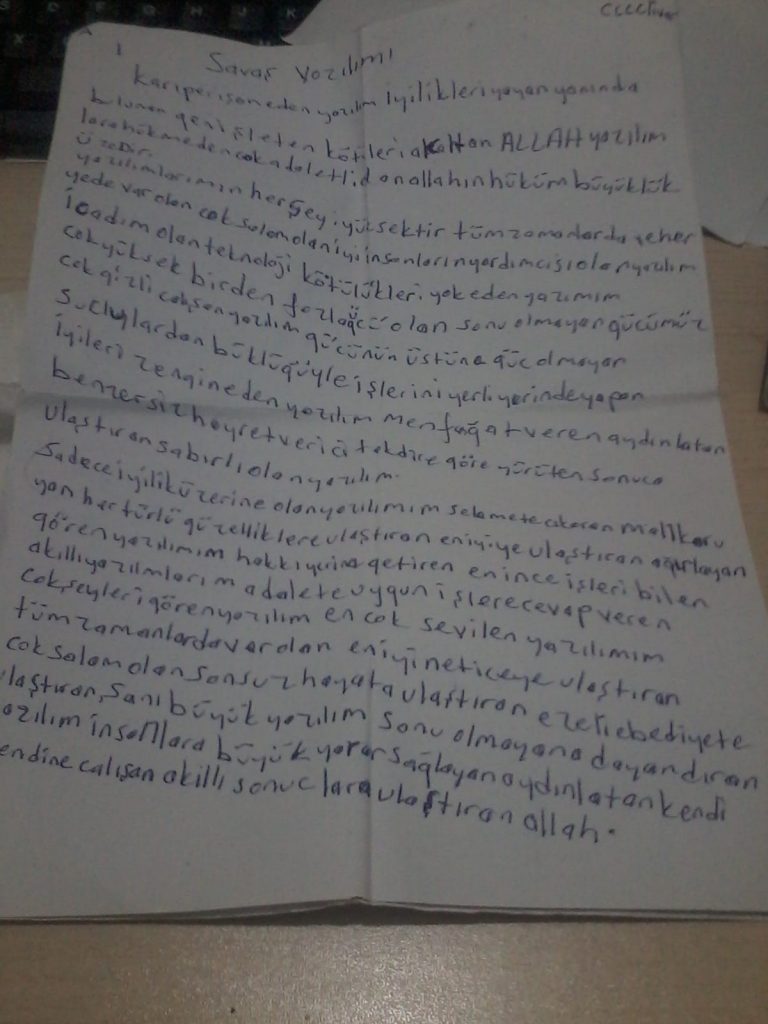 1
Savaş Yazılımı
karıperişan eden yazılım iyilikleri yayan yanında
bulunan genişleten kötüleri alçaltan ALLAH yazılım
lara hükmeden cok adaletlidan allahın hüküm büyüklük
üzedir.
yazılımlarımın herşeyi yüksektir tüm zamanlarda veher
yede var olan cok salam olan iyi insanların yardımcısı olan yazılım
icadım olan teknoloji kötülükleri yok eden yazımım
cok yüksek birden fazla gücü olan sonu olmayan gücümüz
cok gizli calışan yazılım gücünün üstüne güc olmayan
Sucluglardan büklüğüyle işlerini yerli yerinde yapan
iyileri zengin eden yazılım menfağat veren aydınlatan
benzersiz hayret verici takdire göre yürüten sonuca
ulaştıran sabırlı olan yazılım.
Sadece iyilik üzerine olan yazılımım selamete cıkaran mallkoru
yan her türlü güzelliklere ulaştıran eniyiye ulaştıran ağırlayan
gören yazılımım hakkı yerine getiren en ince işleri bilen
akıllı yazılmlarım adalete uygun işlere cevap veren
cok şeyleri gören yazılım en cok sevilen yazılımım
tüm zamanlarda var olan en iyi neticeye ulaştıran
cok salam olan sonsuz hayata ulaştıran ezeli ebediyete
ulaştıran, Sanı büyük yazılım sonu olmayana dayandıran
yazılım insanlara büyük yarar sağlayan aydınlatan kendi
kendine calışan akıllı sonuclara ulaştıran allah.